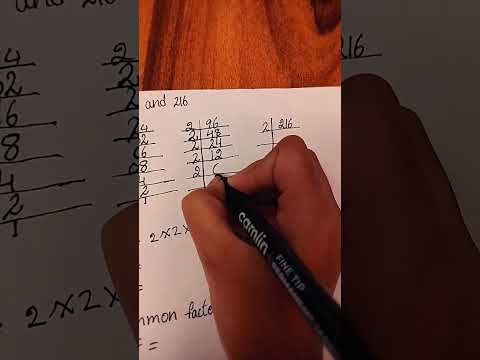 and 216
4 2 96 2 216
2 2 48
6 2 24
8 2 12
4 2 6
2
1
2×2×
=
2×2×
mmon facto
=
camlin
FINE TIP